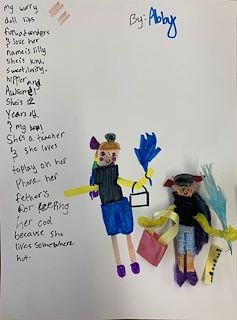 By: Abby
my worry
doll likes
fun and wonders
I love her
name is lilly
she is kind,
sweet, loving,
hipper and
Awkward!
She is 12
years old
I my
She's a teacher
I she loves
to play on her
Phone her
fethers
for
her cod
because she
lives somewhere
hot.